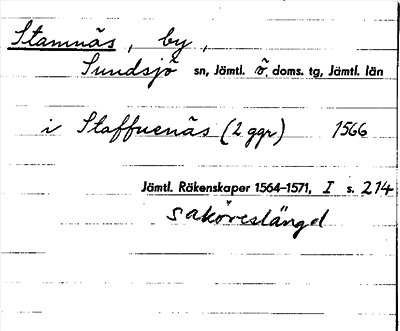 Stamnäs, by,
Sundsjö sn, Jämtl. ö. doms. tg, Jämtl. län
i Staffuenäs (2 ggr) 1566
Jämtl. Räkenskaper 1564–1571, I s. 214
saköreslängd